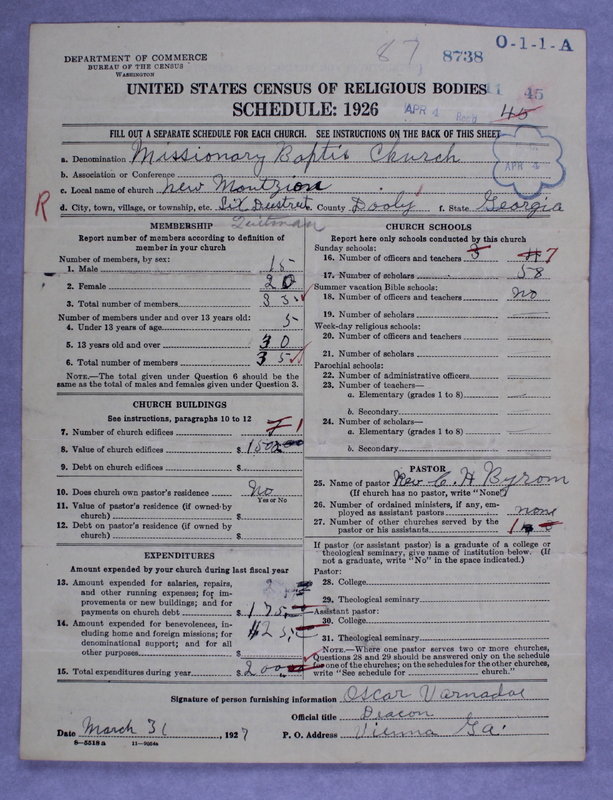 87 8738 O-1-1-A
DEPARTMENT OF COMMERCE
BUREAU OF THE CENSUS
WASHINGTON
UNITED STATES CENSUS OF RELIGIOUS BODIES
11 45
SCHEDULE: 1926
APR 4 Rec'd 45
FILL OUT A SEPARATE SCHEDULE FOR EACH CHURCH. SEE INSTRUCTIONS ON THE BACK OF THIS SHEET
APR 4
a. Denomination Missionary Baptis Church
b. Association or Conference
c. Local name of church new Montzion
R d. City, town, village, or township, etc. Six Deestrect County Dooly f. State Georgia
MEMBERSHIP
Report number of members according to definition of member in your church
Number of members, by sex:
1. Male 15
2. Female 20
3. Total number of members 35
Number of members under and over 13 years old:
4. Under 13 years of age 5
5. 13 years old and over 30
6. Total number of members 35
NOTE.—The total given under Question 6 should be the same as the total of males and females given under Question 3.
CHURCH BUILDINGS
See instructions, paragraphs 10 to 12
7. Number of church edifices 1
8. Value of church edifices $ 1500
9. Debt on church edifices $
10. Does church own pastor's residence No
Yes or No
11. Value of pastor's residence (if owned by church) $
12. Debt on pastor's residence (if owned by church) $
EXPENDITURES
Amount expended by your church during last fiscal year
13. Amount expended for salaries, repairs, and other running expenses; for improvements or new buildings; and for payments on church debt $ 175
14. Amount expended for benevolences, including home and foreign missions; for denominational support; and for all other purposes $ 25
15. Total expenditures during year $ 200
CHURCH SCHOOLS
Report here only schools conducted by this church
Sunday schools:
16. Number of officers and teachers 3 7
17. Number of scholars 58
Summer vacation Bible schools:
18. Number of officers and teachers No
19. Number of scholars
Week-day religious schools:
20. Number of officers and teachers
21. Number of scholars
Parochial schools:
22. Number of administrative officers
23. Number of teachers—
a. Elementary (grades 1 to 8)
b. Secondary
24. Number of scholars—
a. Elementary (grades 1 to 8)
b. Secondary
PASTOR
25. Name of pastor Rev C. H Byrom
(If church has no pastor, write "None")
26. Number of ordained ministers, if any, employed as assistant pastors none
27. Number of other churches served by the pastor or his assistants 1
If pastor (or assistant pastor) is a graduate of a college or theological seminary, give name of institution below. (If not a graduate, write "No" in the space indicated.)
Pastor:
28. College
29. Theological seminary
Assistant pastor:
30. College
31. Theological seminary
NOTE.—Where one pastor serves two or more churches, Questions 28 and 29 should be answered only on the schedule for one of the churches; on the schedules for the other churches, write "See schedule for church."
Signature of person furnishing information Oscar Varnadoe
Official title Deacon
Date March 31, 1927 P. O. Address Vienna Ga.
6—5518a 11—9064a